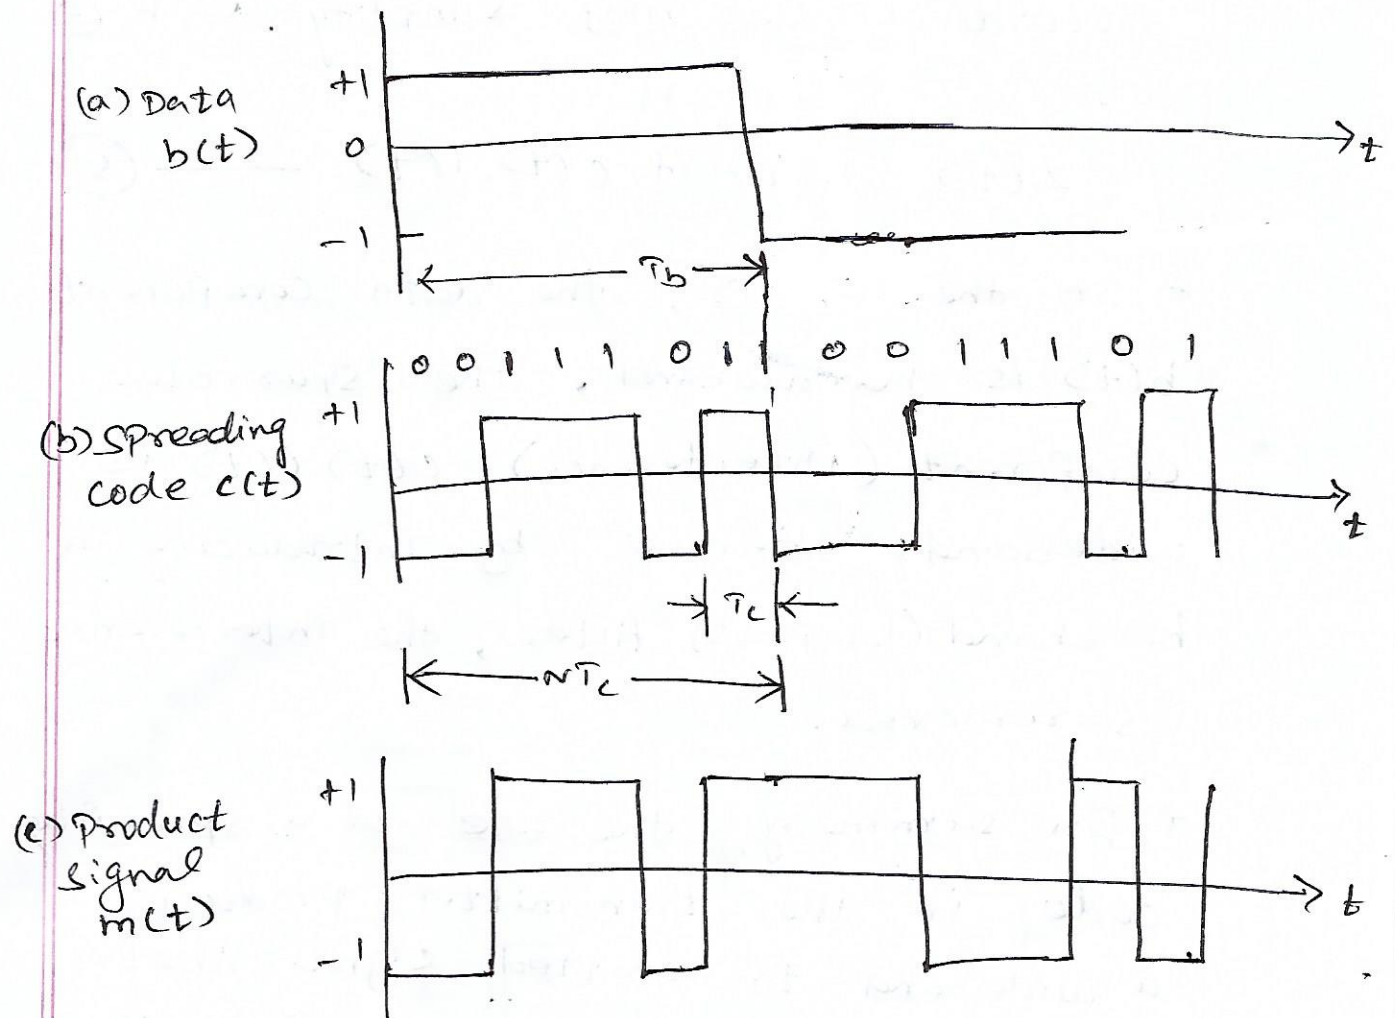 +1
(a) Data
b(t)
0
t
-1
Tb
0 0 1 1 1 0 1 0 0 1 1 1 0 1
+1
(b) Spreading
code c(t)
t
-1
Tc
NTc
+1
(c) Product
signal
m(t)
t
-1